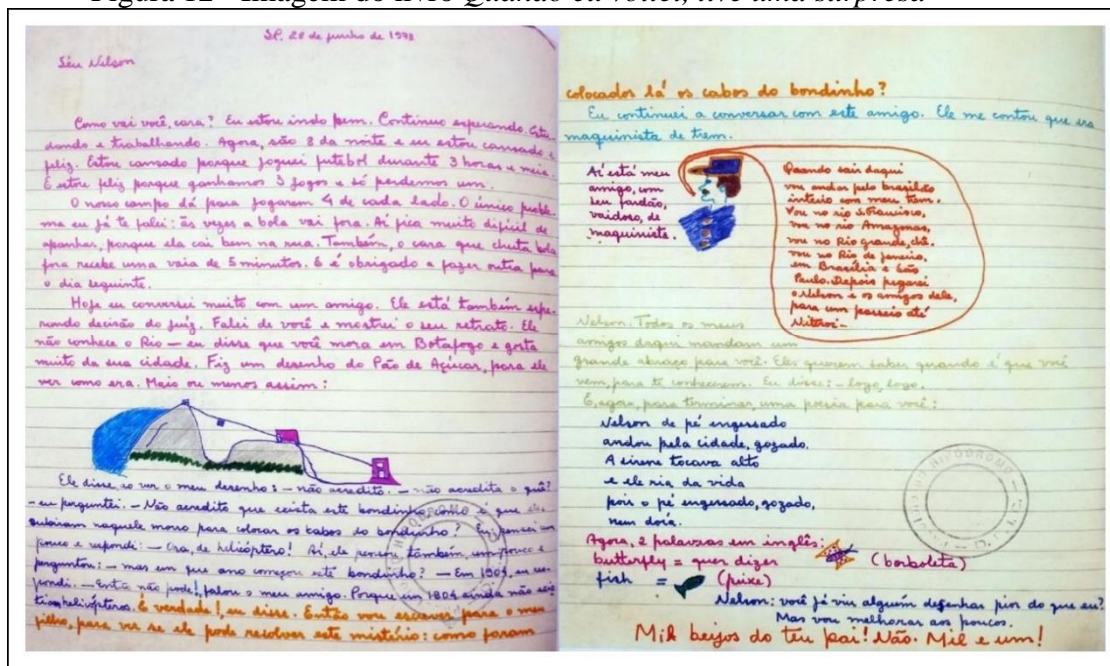 Figura 12 - Imagem do livro Quando eu voltei, tive uma surpresa
SP. 28 de junho de 1973
Seu Nelson
Como vai você, cara? Eu estou indo bem. Continuo esperando. Estu-
dando e trabalhando. Agora, são 8 da noite e eu estou cansado e
feliz. Estou cansado porque joguei futebol durante 3 horas e meia.
E estou feliz porque ganhamos 3 jogos e só perdemos um.
O nosso campo dá para jogarem 4 de cada lado. O único proble-
ma eu já te falei: às vezes a bola vai fora. Aí fica muito difícil de
apanhar, porque ela cai bem na rua. Também, o cara que chuta bola
fora recebe uma vaia de 5 minutos. E é obrigado a fazer outra para
o dia seguinte.
Hoje eu conversei muito com um amigo. Ele está também espe-
rando decisão do juiz. Falei de você e mostrei o seu retrato. Ele
não conhece o Rio — eu disse que você mora em Botafogo e gosta
muito da sua cidade. Fiz um desenho do Pão de Açúcar, para ele
ver como era. Mais ou menos assim:
Ele disse, ao ver o meu desenho: — não acredito. — não acredita o quê?
— eu perguntei. — Não acredito que exista este bondinho, como é que
subiram naquele morro para colocar os cabos do bondinho? Eu pensei um
pouco e respondi: — Ora, de helicóptero! Aí, ele pensou também um pouco e
perguntou: — mas em que ano começou este bondinho? — Em 1904, eu res-
pondi. — Então não pode!, falou o meu amigo. Porque em 1904 ainda não
helicópteros. É verdade!, eu disse. Então vou escrever para o meu
filho, para ver se ele pode resolver este mistério: como foram
colocados lá os cabos do bondinho?
Eu continuei a conversar com este amigo. Ele me contou que era
maquinista de trem.
Aí está meu
amigo, com
seu fardão,
vaidoso, de
maquinista.
Quando sair daqui
vou andar pelo brasilzão
inteiro com meu trem.
Vou no rio S.Francisco,
vou no rio Amazonas,
vou no Rio grande,
vou no Rio de Janeiro,
em Brasília e São
Paulo. Depois pegarei
o Nelson e os amigos dele,
para um passeio até
Niterói —
Nelson. Todos os meus
amigos daqui mandam um
grande abraço para você. Eles querem saber quando é que você
vem, para te conhecerem. Eu disse: — logo, logo.
E, agora, para terminar, uma poesia para você:
Nelson de pé engessado
andou pela cidade, gozado.
A sirene tocava alto
e ele ria da vida
pois o pé engessado, gozado,
nem doía.
Agora, 2 palavras em inglês:
butterfly = quer dizer (borboleta)
fish = (peixe)
Nelson: você já viu alguém desenhar pior do que eu?
Mas vou melhorar aos poucos.
Mil beijos do teu pai! Não. Mil e um!